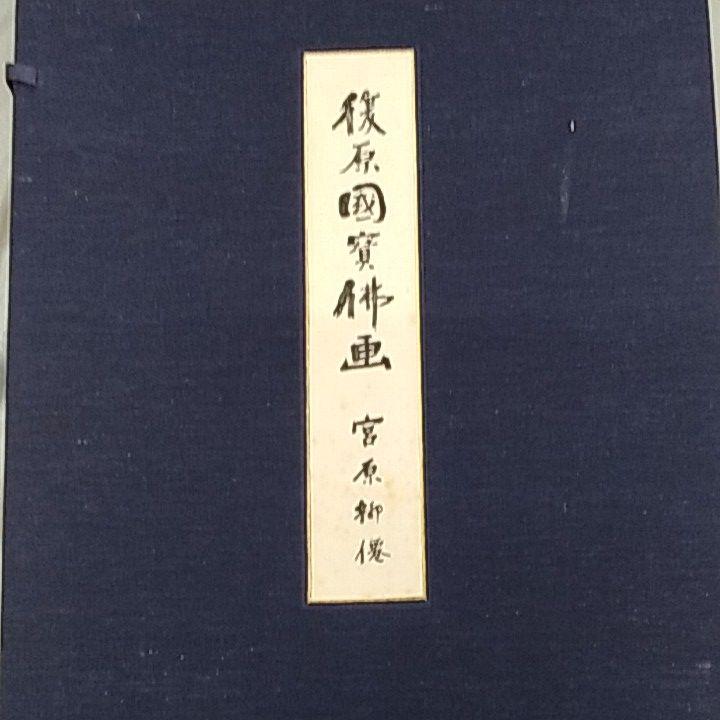 復原國寳佛画 宮原柳僊